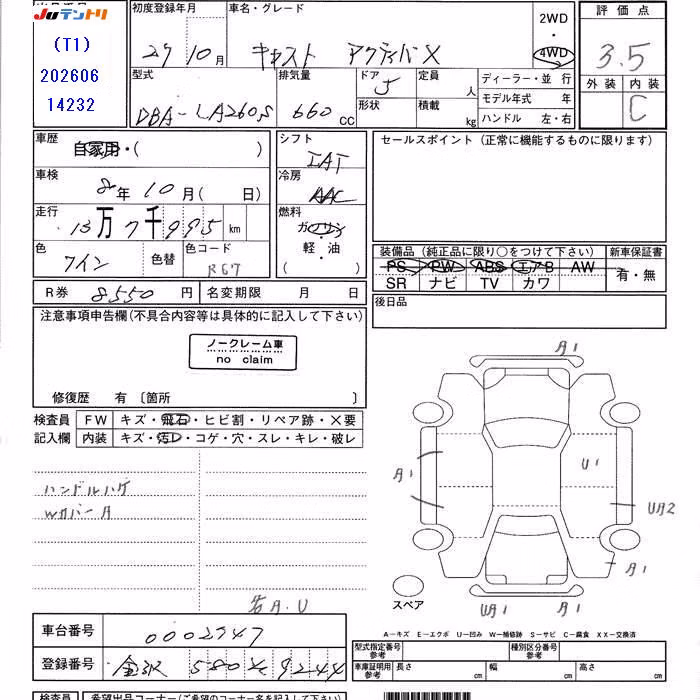 JUテントリ
(T1)
202606
14232
初度登録年月
27 10月
車名・グレード
キャスト アクティバX
2WD
・
4WD
評価点
3.5
外装 内装
C
型式
DBA-LA260S
排気量
660 CC
ドア
5
形状
定員
人
積載
kg
ディーラー・並 行
モデル年式 年
ハンドル 左・右
車歴
自家用・( )
車検
8年10月( 日)
走行
13万7千995km
色
ワイン
色替
色コード
R67
シフト
IAT
冷房
AAC
燃料
ガソリン
・
軽・油
( )
セールスポイント (正常に機能するものに限ります)
装備品 (純正品に限り○をつけて下さい)
PS PW ABS エアB AW
SR ナビ TV カワ
新車保証書
有・無
R券 8550円
名変期限 月 日
後日品
注意事項申告欄(不具合内容等は具体的に記入して下さい)
ノークレーム車
no claim
修復歴 有 〔箇所 〕
検査員
記入欄
FW キズ・飛石・ヒビ割・リペア跡・X要
内装 キズ・汚レ・コゲ・穴・スレ・キレ・破レ
ハンドルハゲ
WカバーA
各A.U
A1
A1
U1
UA2
A1
UA1
A1
スペア
A-キズ E-エクボ U-凹み W-補修跡 S-サビ C-腐食 XX-交換済
車台番号 0002747
登録番号
580
9244
型式指定番号
参考
種別区分番号
参考
車庫証明用
参考
長さ cm
幅 cm
高さ cm
検査員
希望出品コーナー(ご希望のコーナー名を記入して下さい)